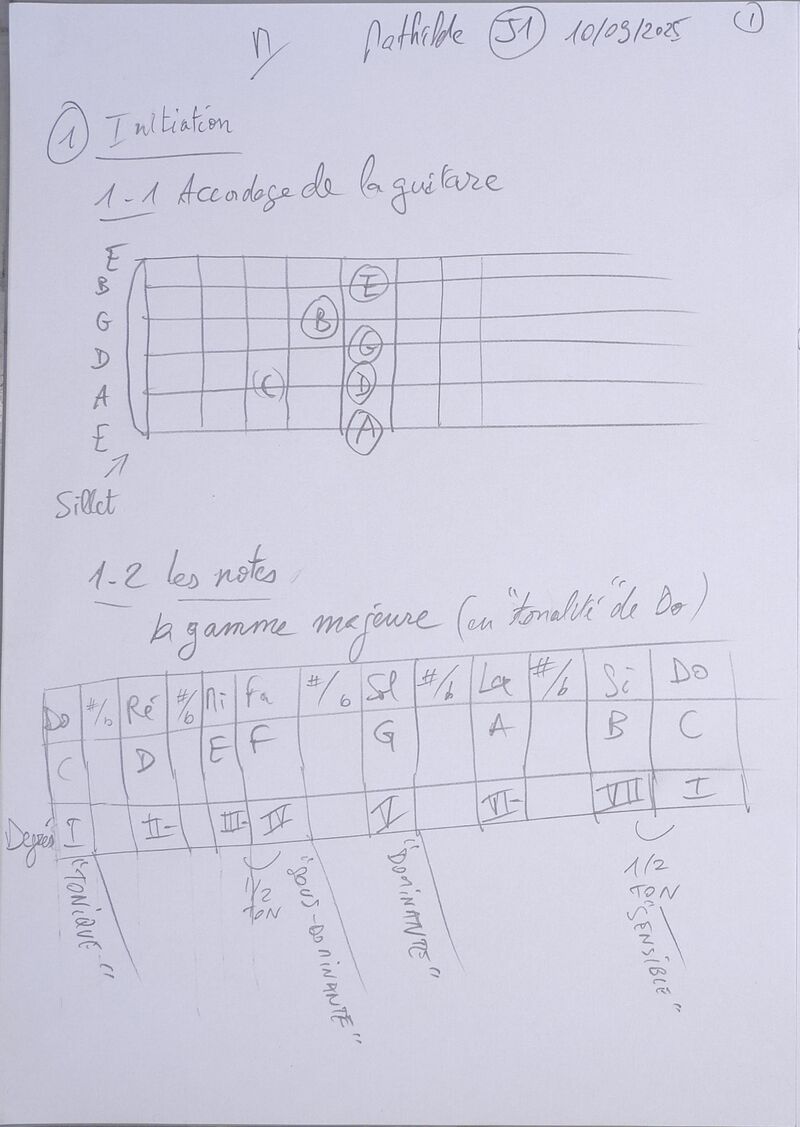 Mathilde J1 10/09/2025 1
1 Initiation
1-1 Accordage de la guitare
E
B E
G B
D G
A C D
E A
Sillet
1-2 les notes
la gamme majeure (en "tonalité" de Do)
Do #/b Ré #/b Mi Fa #/b Sol #/b La #/b Si Do
C D E F G A B C
Degrés I II- III- IV V VI- VII I
"TONIQUE" 1/2 TON "SOUS-DOMINANTE" "DOMINANTE" 1/2 TON "SENSIBLE"